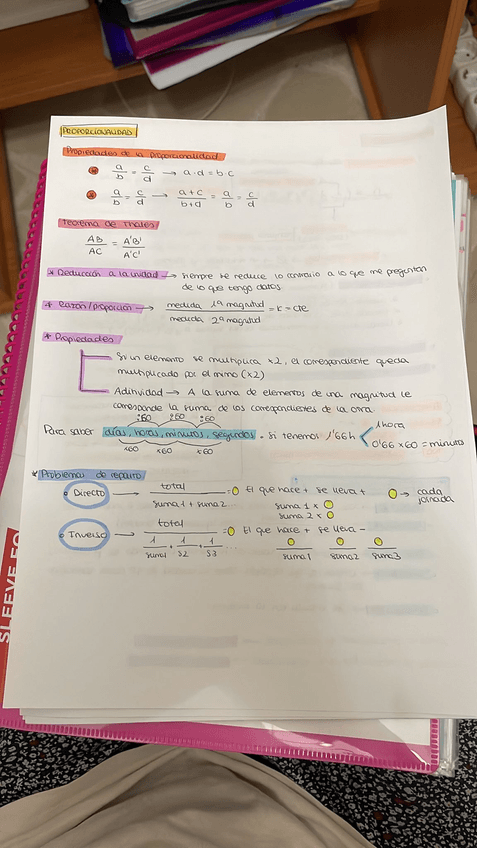 PROPORCIONALIDAD
Propiedades de la proporcionalidad
a/b = c/d → a·d = b·c
a/b = c/d → a+c/b+d = a/b = c/d
Teorema de Thales
AB/AC = A'B'/A'C'
* Deducción a la unidad → siempre se reduce lo contrario a lo que me preguntan
de lo que tengo datos
* Razón/proporción → medida 1ª magnitud / medida 2ª magnitud = K = cte
* Propiedades
Si un elemento se multiplica x2, el correspondiente queda
multiplicado por el mimo (x2)
Aditividad → A la suma de elementos de una magnitud le
corresponde la suma de los correspondientes de la otra
:60 :60 :60
Para saber días, horas, minutos, segundos = si tenemos 1'66h < 1hora
0'66 x60 = minutos
x60 x60 x60
* Problemas de reparto
Directo → total / suma1 + suma2... = El que hace + se lleva + → cada jornada
suma 1 x
suma 2 x
Inverso → total / 1/suma1 + 1/S2 + 1/S3 ... = El que hace + se lleva -
suma1 suma2 suma3
SLEEVE FO